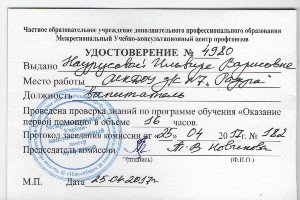 Частное образовательное учреждение дополнительного профессионального образования
Межрегиональный Учебно-консультационный центр профсоюзов
УДОСТОВЕРЕНИЕ № 4980
Выдано Наурусовой Ильвире Варисовне
Место работы д/с №7, "Радуга"
Должность воспитатель
Проведена проверка знаний по программе обучения «Оказание
первой помощи» в объеме 16 часов.
Протокол заседания комиссии от 25 04 2017г. № 182
Председатель комиссии
(подпись) (Ф.И.О.)
М.П. Дата 25.04.2017г.